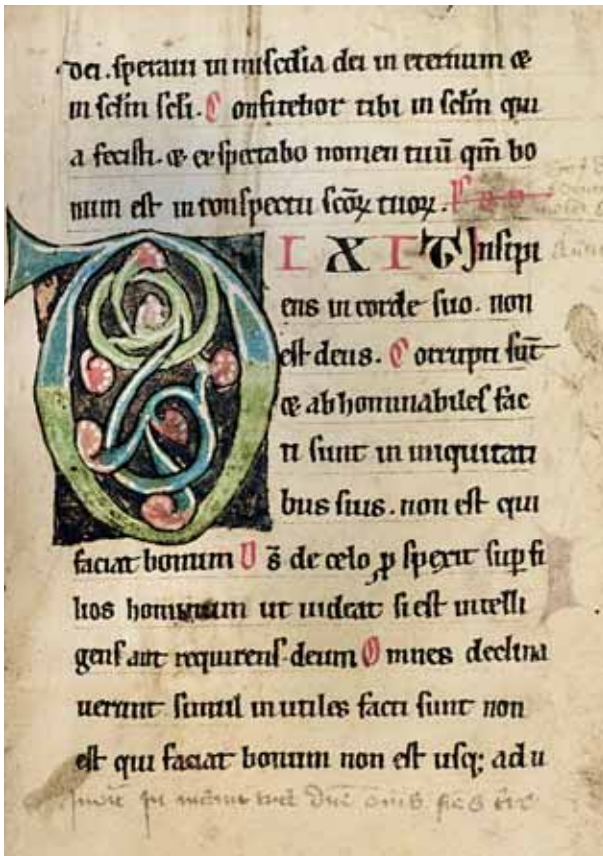 dei. speraui in mis̄cdia dei in eternum &
in sc̄lm sc̄li. Confitebor tibi in sc̄lm qui
a fecisti. & expectabo nomen tuū qm̄ bo
num est in conspectu sc̄oꝝ tuoꝝ.
DIXIT Insipi
ens in corde suo. non
est deus. Corrupti sūt
& abhominabiles fac
ti sunt in iniquitati
bus suis. non est qui
faciat bonum D̄s de celo ꝓspexit suꝑ fi
lios hominum ut uideat si est intelli
gens aut requirens deum Omnes declina
uerunt simul inutiles facti sunt non
est qui faciat bonum non est usq; ad u